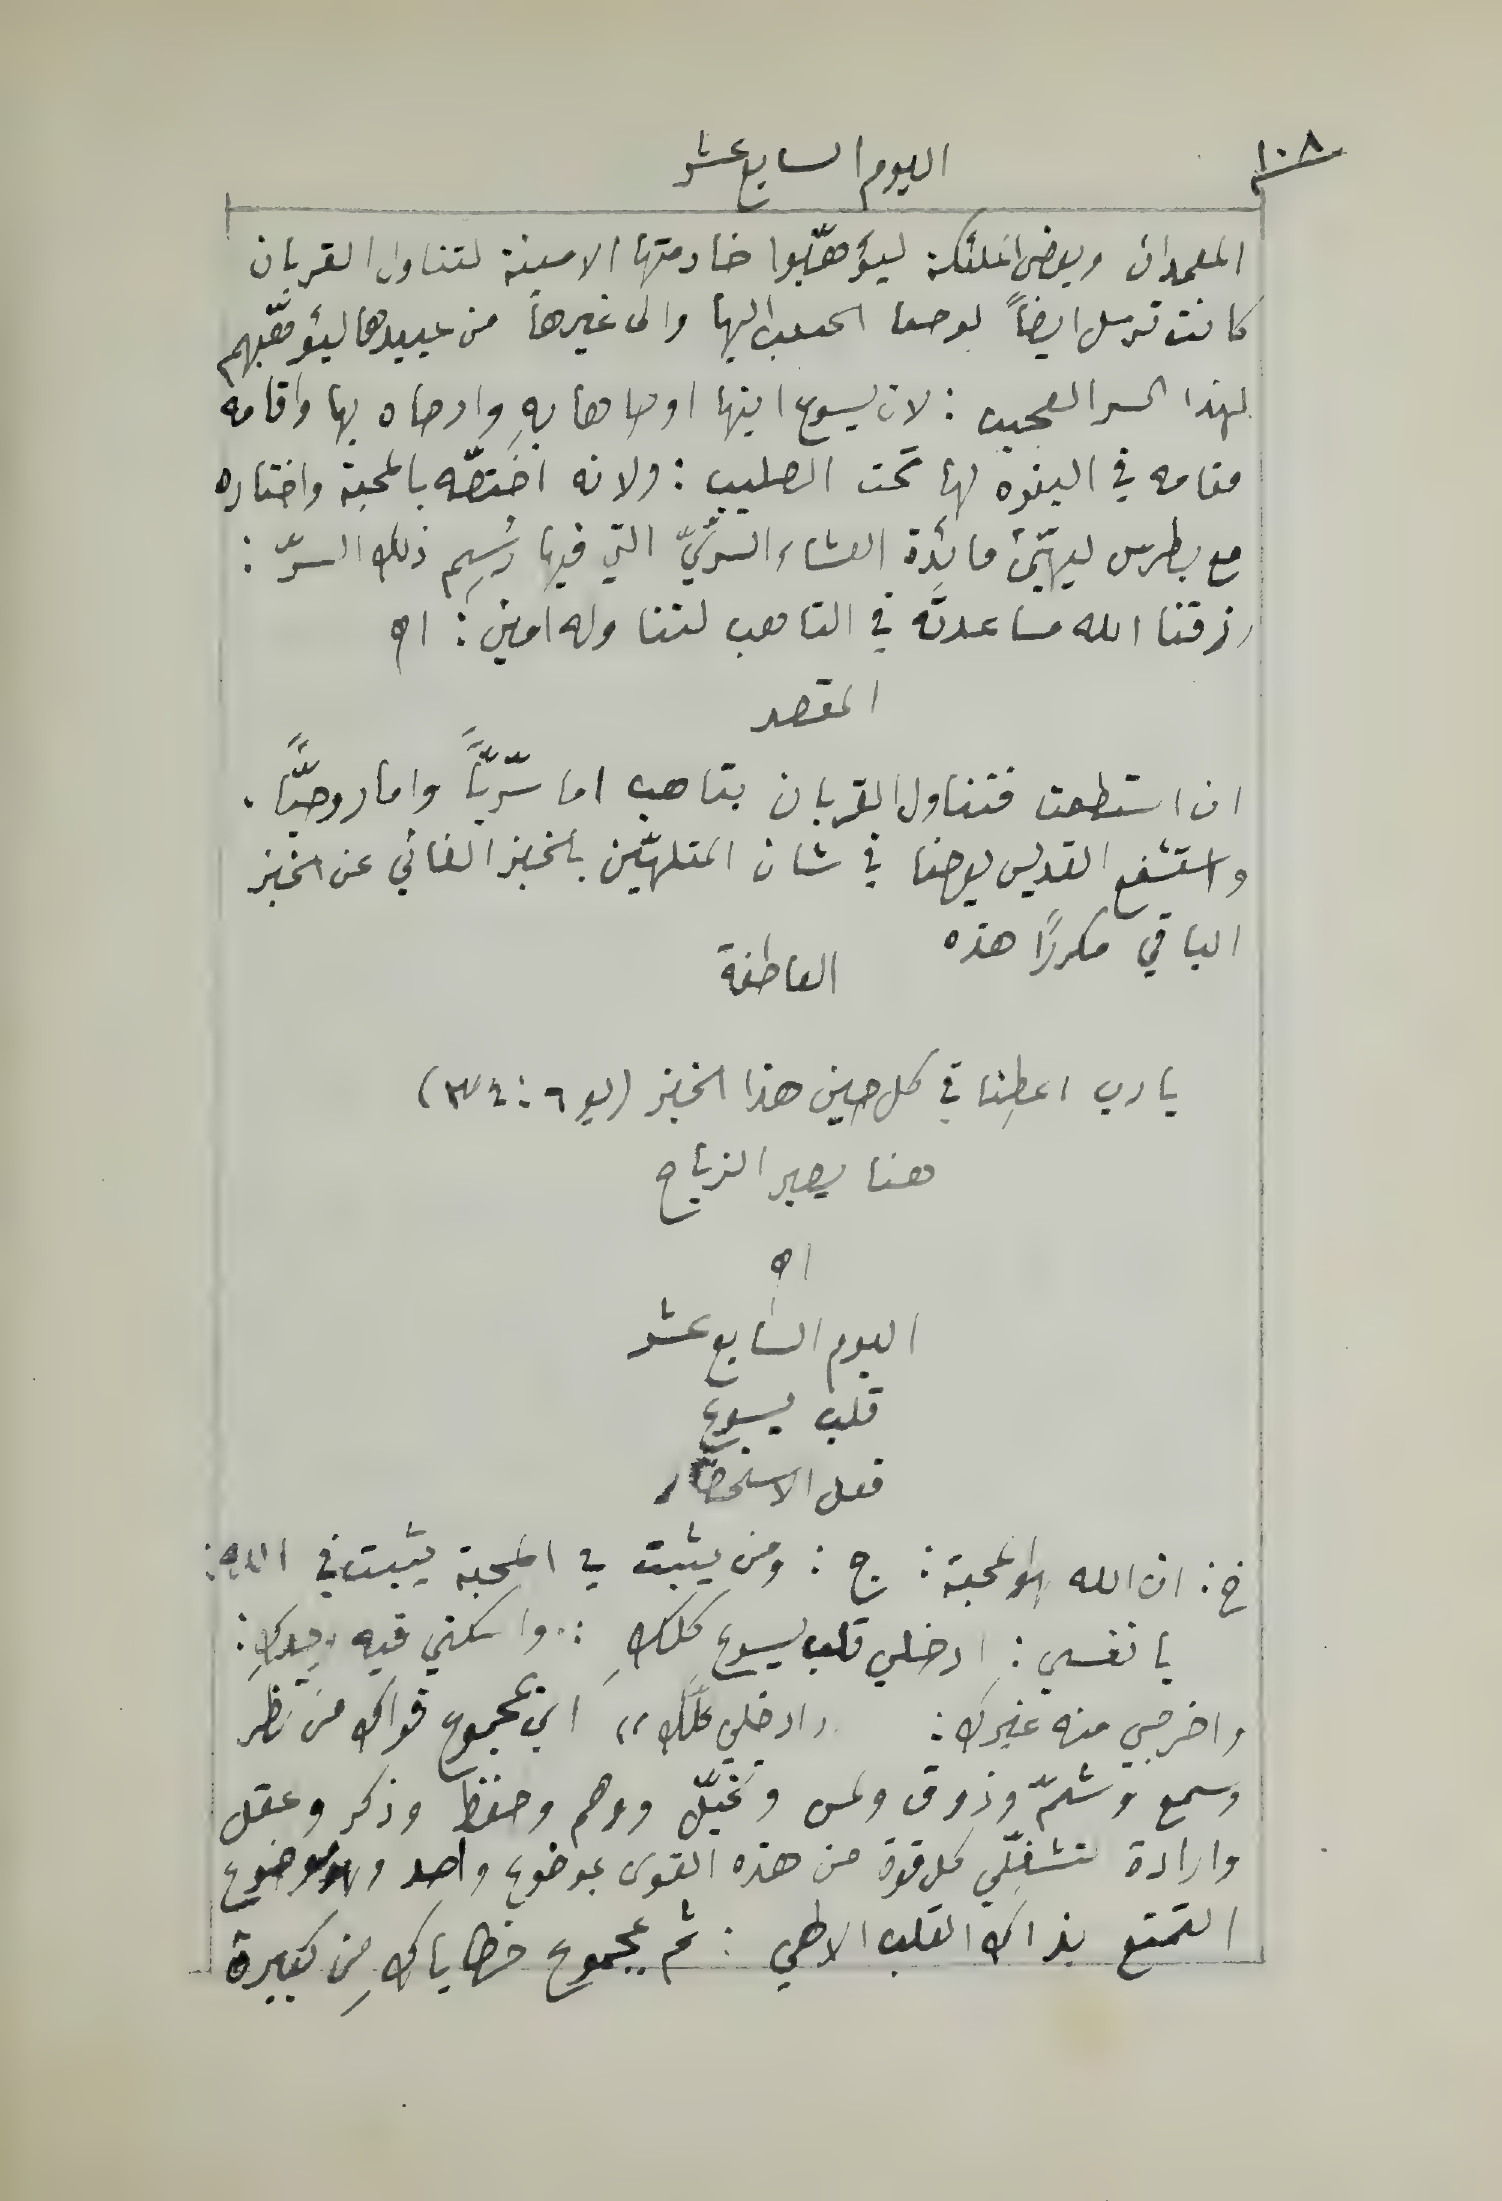 ١٠٨
اليوم السابع عشر
المعمدان وبعض الملئكة ليؤهّبوا خادمتها الامينة لتناول القربان
كانت ترسل ايضاً يوحنا الحبيب اليها والى غيرها من عبيدها ليؤهّبهم
لهذا السر العجيب : لان يسوع ابنها اوصاها بهِ واوصاه بها واقامه
مقامه في البنوه لها تحت الصليب : ولانه اختصّه بالمحبة واختاره
مع بطرس ليهيّئ مائِدة العشاء السرّيّ التي فيها رُسِم ذلك السرّ :
رزقنا الله مساعدته في التاهب لتناوله امين : اه
المقصد
ان استطعت فتناول القربان بتاهب اما سرّيّاً واما روحيّاً .
واستشفع القديس يوحنا في شان المتلهيّن بالخبز الفاني عن الخبز
الباقي مكررًا هذه
العاطفة
يا رب اعطِنا في كل حين هذا الخبز (يو ٦ : ٣٤)
هنا يصير الزياح
اه
اليوم السابع عشر
قلب يسوع
فعل الاستحضار
خ : ان الله هو المحبة : ج : ومن يثبت في المحبة يثبت في الله :
يا نفسي : ادخلي قلب يسوع كلكِ : واسكني فيه وحدكِ :
واخرجي منه غيرك : ادخلي كلّك ,, اي بمجموع قواك من نظر
وسمع وشمّ وذوق ولمس وتخيّل ووهم وحفظ وذكر وعقل
وارادة لتشغِلّي كل قوة من هذه القوى بموضوع واحد وهو موضوع
التمتع بذاك القلب الالهي : ثم بمجموع خطاياكِ من كبيرة